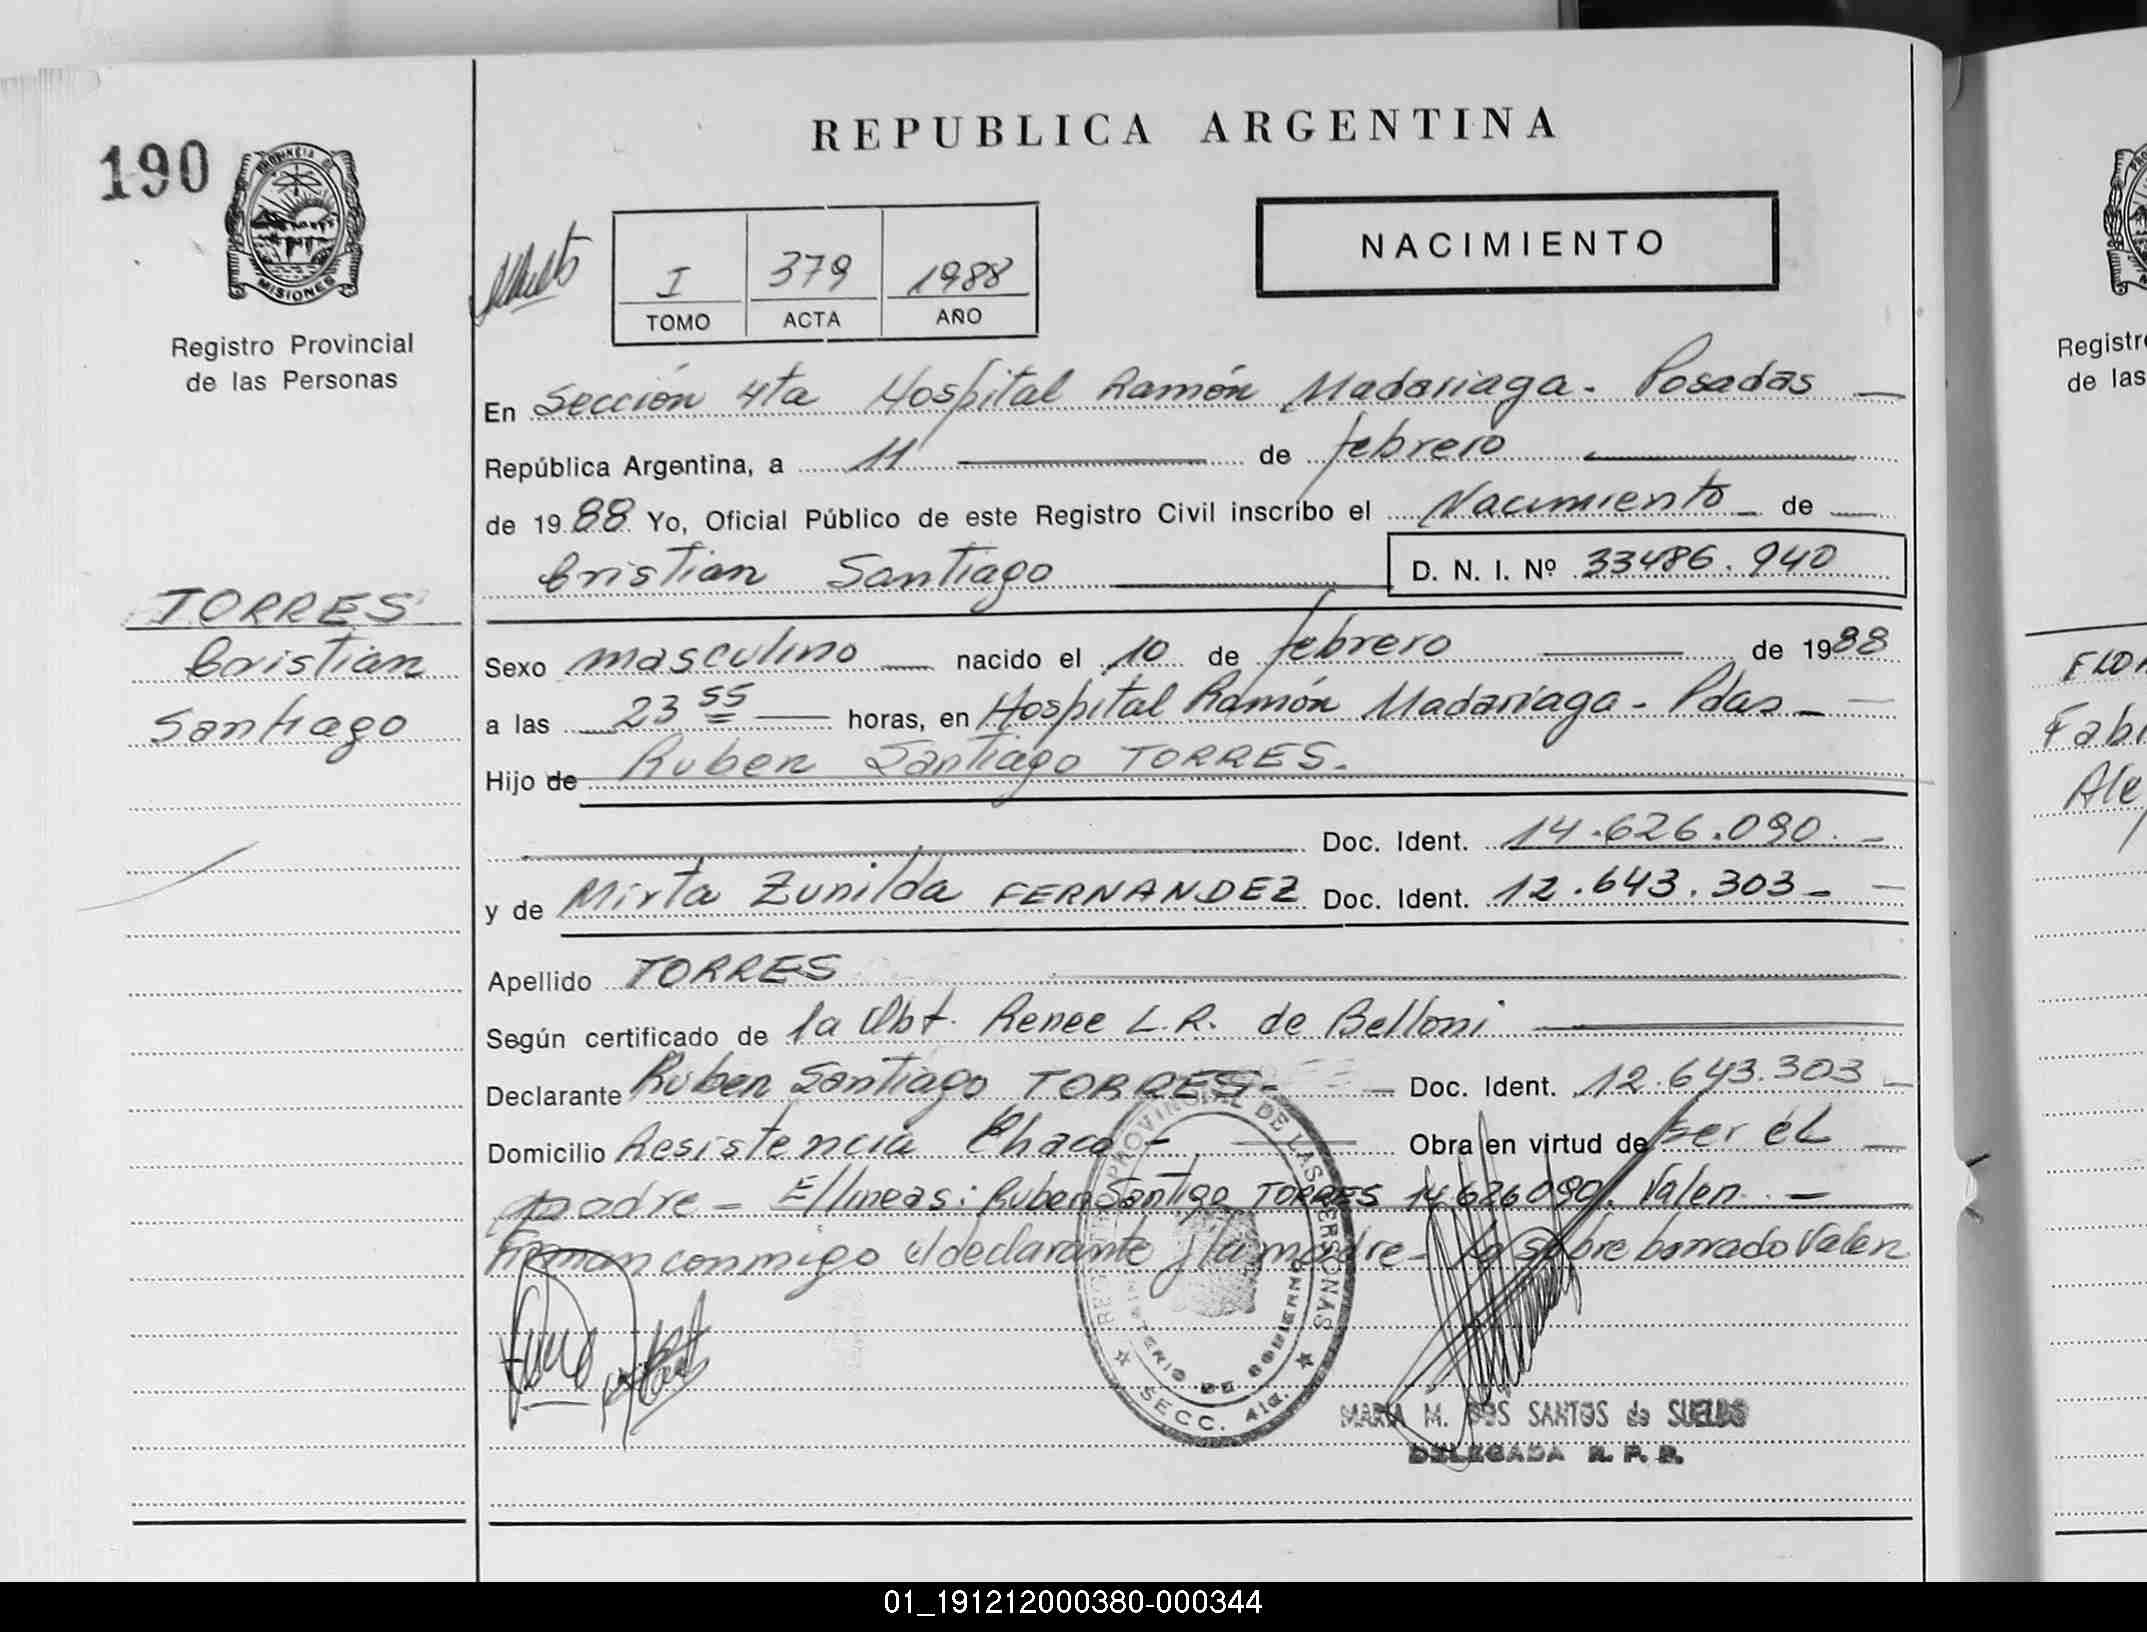 REPUBLICA ARGENTINA
190
PROVINCIA DE
MISIONES
Registro Provincial
de las Personas
NACIMIENTO
I 379 1988
TOMO ACTA AÑO
En Sección 4ta Hospital Ramón Madariaga - Posadas
República Argentina, a 11 de febrero
de 1988 Yo, Oficial Público de este Registro Civil inscribo el Nacimiento de
Cristian Santiago D. N. I. Nº 33486.940
TORRES
Cristian
Santiago
Sexo masculino nacido el 10 de febrero de 1988
a las 23 55 horas, en Hospital Ramón Madariaga - Pdas -
Hijo de Ruben Santiago TORRES.
Doc. Ident. 14.626.090. -
y de Mirta Zunilda FERNANDEZ Doc. Ident. 12.643.303 -
Apellido TORRES
Según certificado de la Obt. Renee L.R. de Belloni
Declarante Ruben Santiago TORRES - Doc. Ident. 12.643.303 -
Domicilio Resistencia Chaco - Obra en virtud de ser él
padre - E/lineas: Ruben Santigo TORRES 14.626090. Valen. -
Firman conmigo el declarante y la madre - lo sobre borrado Valen
REG. PROVINCIAL DE LAS PERSONAS
MINISTERIO DE GOBIERNO
SECC. 4ta.
MARIA M. DOS SANTOS de SUELDO
DELEGADA R. P. P.
Registr
de las
FLOR
Fabi
Ale
01_191212000380-000344